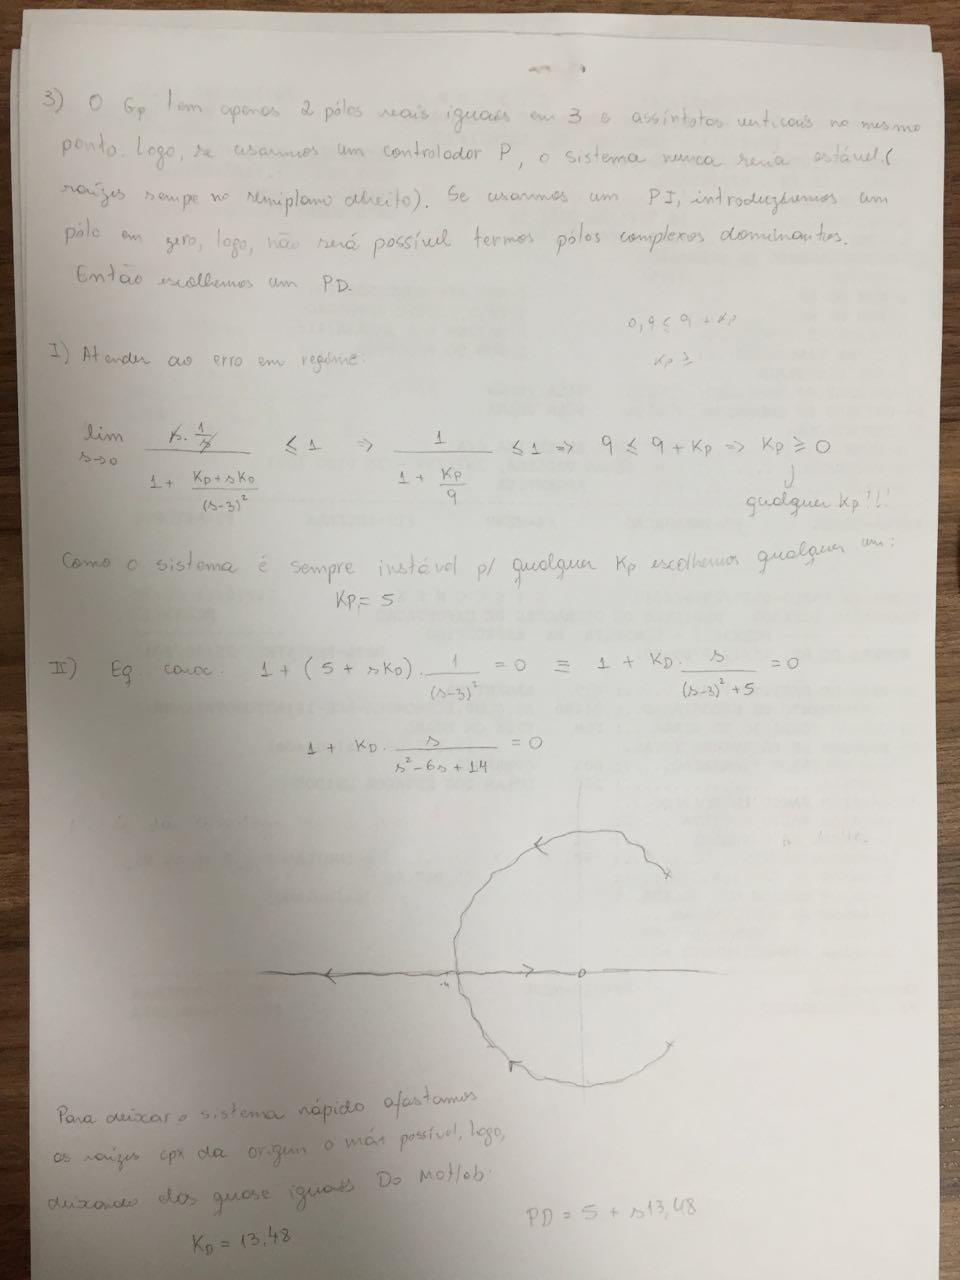 3) O Gp tem apenas 2 pólos reais iguais em 3 e assíntotas verticais no mesmo
ponto. Logo, se usarmos um controlador P, o sistema nunca seria estável (
raízes sempe no semiplano direito). Se usarmos um PI, introduziremos um
pólo em zero, logo, não será possível termos pólos complexos dominantes.
Então escolhemos um PD.
0,9 ≤ 9 + Kp
Kp ≥
I) Atender ao erro em regime:
lim s→0 (s · 1/s) / (1 + (Kp + sKD)/(s-3)²) ≤ 1 ⇒ 1 / (1 + Kp/9) ≤ 1 ⇒ 9 ≤ 9 + Kp ⇒ Kp ≥ 0
qualquer Kp!!!
Como o sistema é sempre instável p/ qualquer Kp escolhemos qualquer um:
Kp = 5
II) Eq. carac. 1 + (5 + sKD) · 1/(s-3)² = 0 ≡ 1 + KD · s/((s-3)² + 5) = 0
1 + KD · s/(s² - 6s + 14) = 0
Para deixar o sistema rápido afastamos
as raízes cpx da origem o máx possível, logo,
deixando elas quase iguais Do Matlab:
KD = 13,48
PD = 5 + s13,48